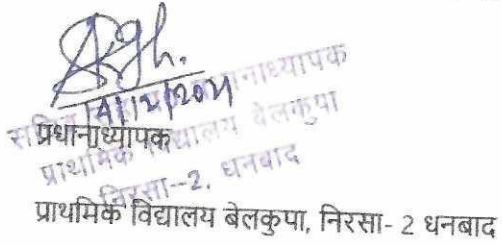 प्रधानाध्यापक
प्राथमिक विद्यालय बेलकुपा
निरसा--2, धनबाद
प्रधानाध्यापक
प्राथमिक विद्यालय बेलकुपा, निरसा- 2 धनबाद